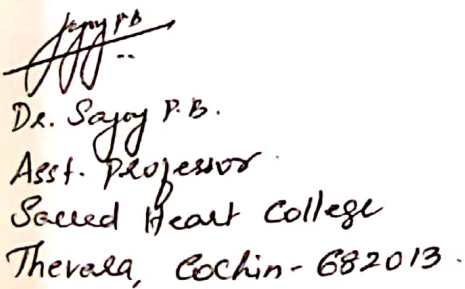 Sajoy P.B
Dr. Sajoy P.B.
Asst. Professor
Sacred Heart College
Thevara, Cochin - 682013.